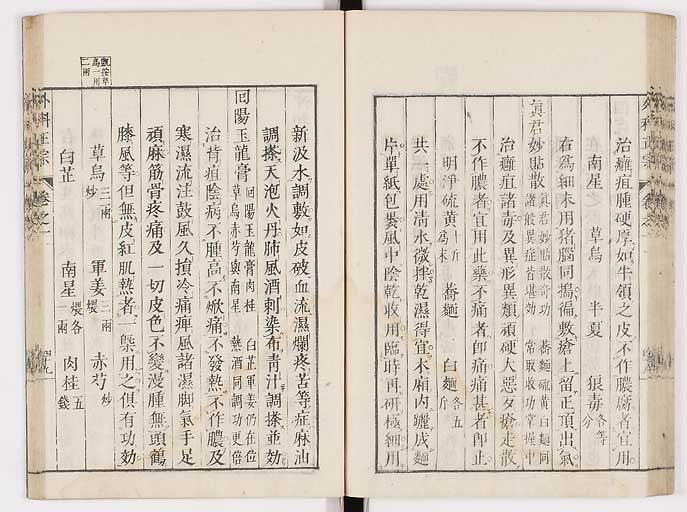 治癰疽腫硬厚如牛領之皮不作膿腐者宜用
南星 草烏 半夏 狼毒各等分
右爲細末用猪腦同搗徧敷瘡上留正頂出氣
眞君妙貼散眞君妙貼散奇功 蕎麵硫黄白麵同 諸般異症皆甚効 常取收功掌握中
治癰疽諸毒及異形異類頑硬大惡歹瘡走散
不作膿者宜用此藥不痛者卽痛痛甚者卽止
明淨硫黄十斤爲末 蕎麵 白麵各五斤
共一處用清水微拌乾濕得宜木廂内曬成麵
片單紙包裹風中陰乾收用臨時再研極細用
新汲水調敷如皮破血流濕爛疼苦等症麻油
調搽天泡火丹肺風酒刺染布青汁調搽並効
回陽玉龍膏回陽玉龍膏肉桂 白芷軍姜仍在位 草烏赤芍與南星 熱酒同調功更倍
治背疽陰病不腫高不焮痛不發熱不作膿及
寒濕流注鼓風久損冷痛痺風諸濕脚氣手足
頑麻筋骨疼痛及一切皮色不變漫腫無頭鶴
膝風等但無皮紅肌熱者一槩用之俱有功効
草烏三兩炒 軍姜二兩煨 赤芍炒
白芷 南星煨各一兩 肉桂五錢
外科正宗 卷之一